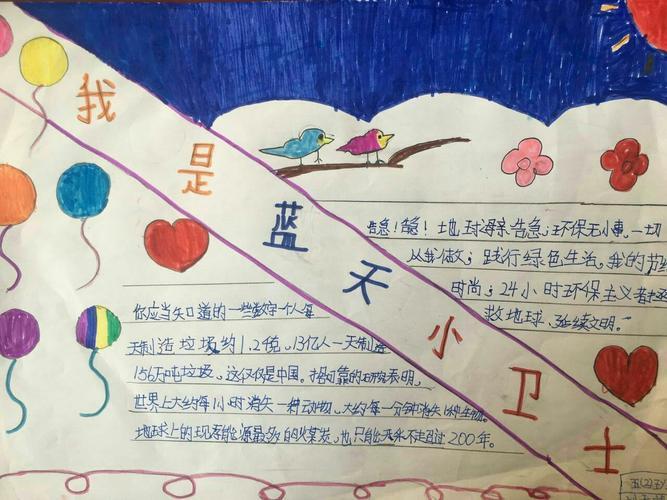 我是蓝天小卫士
告急！告急！地球母亲告急；环保无小事，一切
从我做Y；践行绿色生活，我的节约
时尚；24小时环保主义者
救地球，延续文明。
你应当知道的一些数字一个人每
天制造垃圾约1.2倍，13亿人一天制造
156万吨垃圾，这仅仅是中国。据可靠的研究表明，
世界上大约每小时消失一种动物，大约每一分钟消失1种生物。
地球上的现存能源最多的煤炭，也只能开采不超过200年。
五(2)